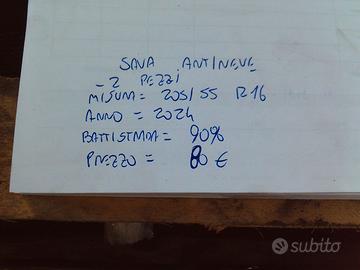 SAVA ANTINEVE
- 2 PEZZI
MISURA = 205/55 R16
ANNO = 2024
BATTISTRADA = 90%
PREZZO = 80 €
subito